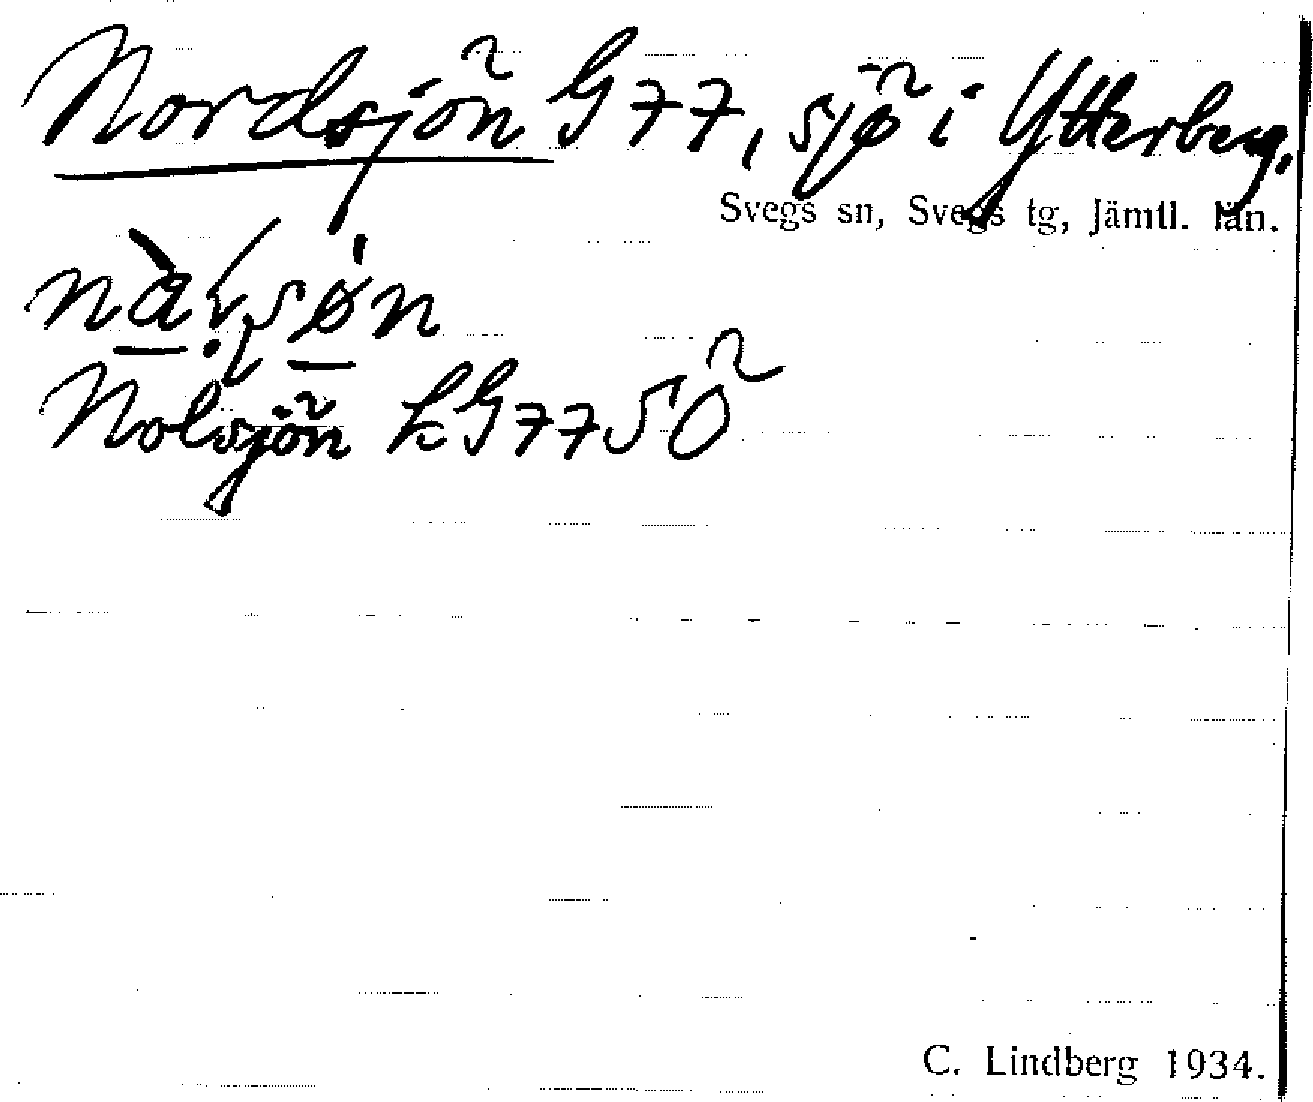 Nordsjön G77, sjö i Ytterberg.
Svegs sn, Svegs tg, Jämtl. län.
Nolsjön kG77 SÖ
C. Lindberg 1934.